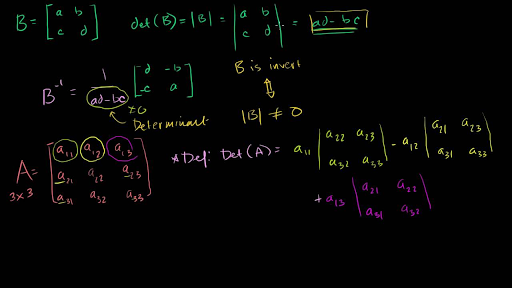 B = [ a b ; c d ]   det(B) = |B| = | a b ; c d | = ad - bc
B⁻¹ = 1 / (ad - bc) [ d -b ; -c a ]   B is invert
≠ 0   ⇕
Determinant   |B| ≠ 0
A = [ a₁₁ a₁₂ a₁₃ ; a₂₁ a₂₂ a₂₃ ; a₃₁ a₃₂ a₃₃ ]   * Def: Det(A) = a₁₁ | a₂₂ a₂₃ ; a₃₂ a₃₃ | - a₁₂ | a₂₁ a₂₃ ; a₃₁ a₃₃ |
3×3   + a₁₃ | a₂₁ a₂₂ ; a₃₁ a₃₂ |